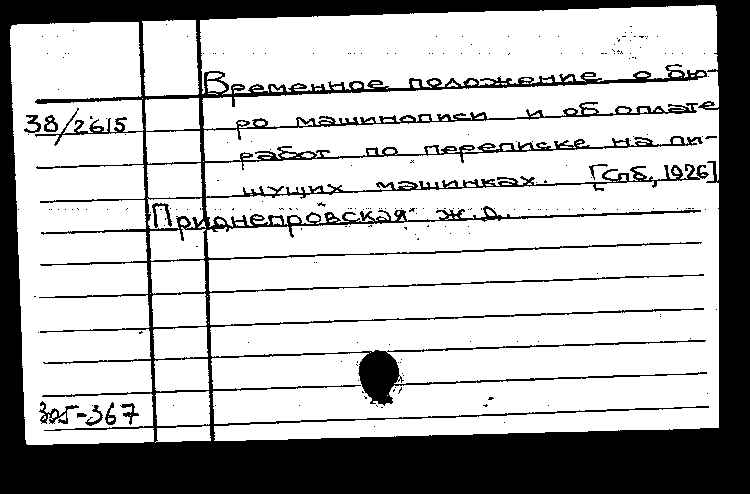 Временное положение о бю-
38/2615
ро машинописи и об оплате
работ по переписке на пи-
шущих машинках. [Спб, 1926]
Приднепровская ж.д.
305-367